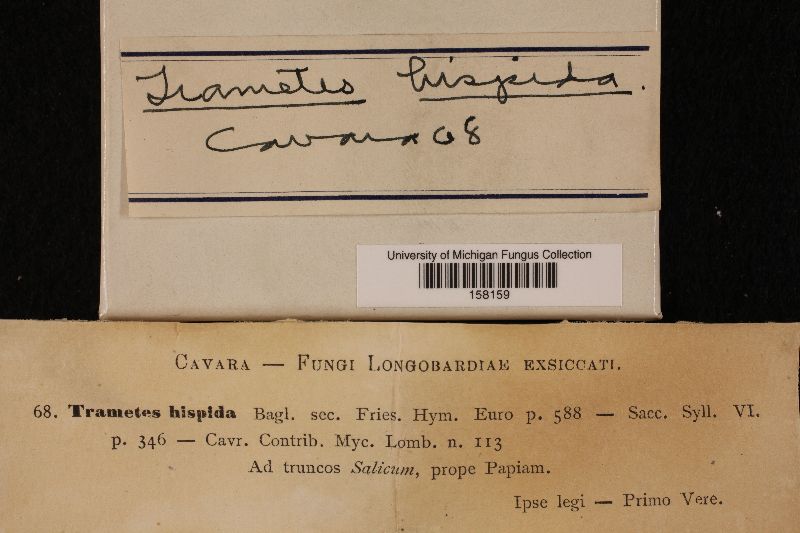 Trametes hispida.
Cavara 68
University of Michigan Fungus Collection
158159
CAVARA — FUNGI LONGOBARDIAE EXSICCATI.
68. Trametes hispida Bagl. sec. Fries. Hym. Euro p. 588 — Sacc. Syll. VI.
p. 346 — Cavr. Contrib. Myc. Lomb. n. 113
Ad truncos Salicum, prope Papiam.
Ipse legi — Primo Vere.